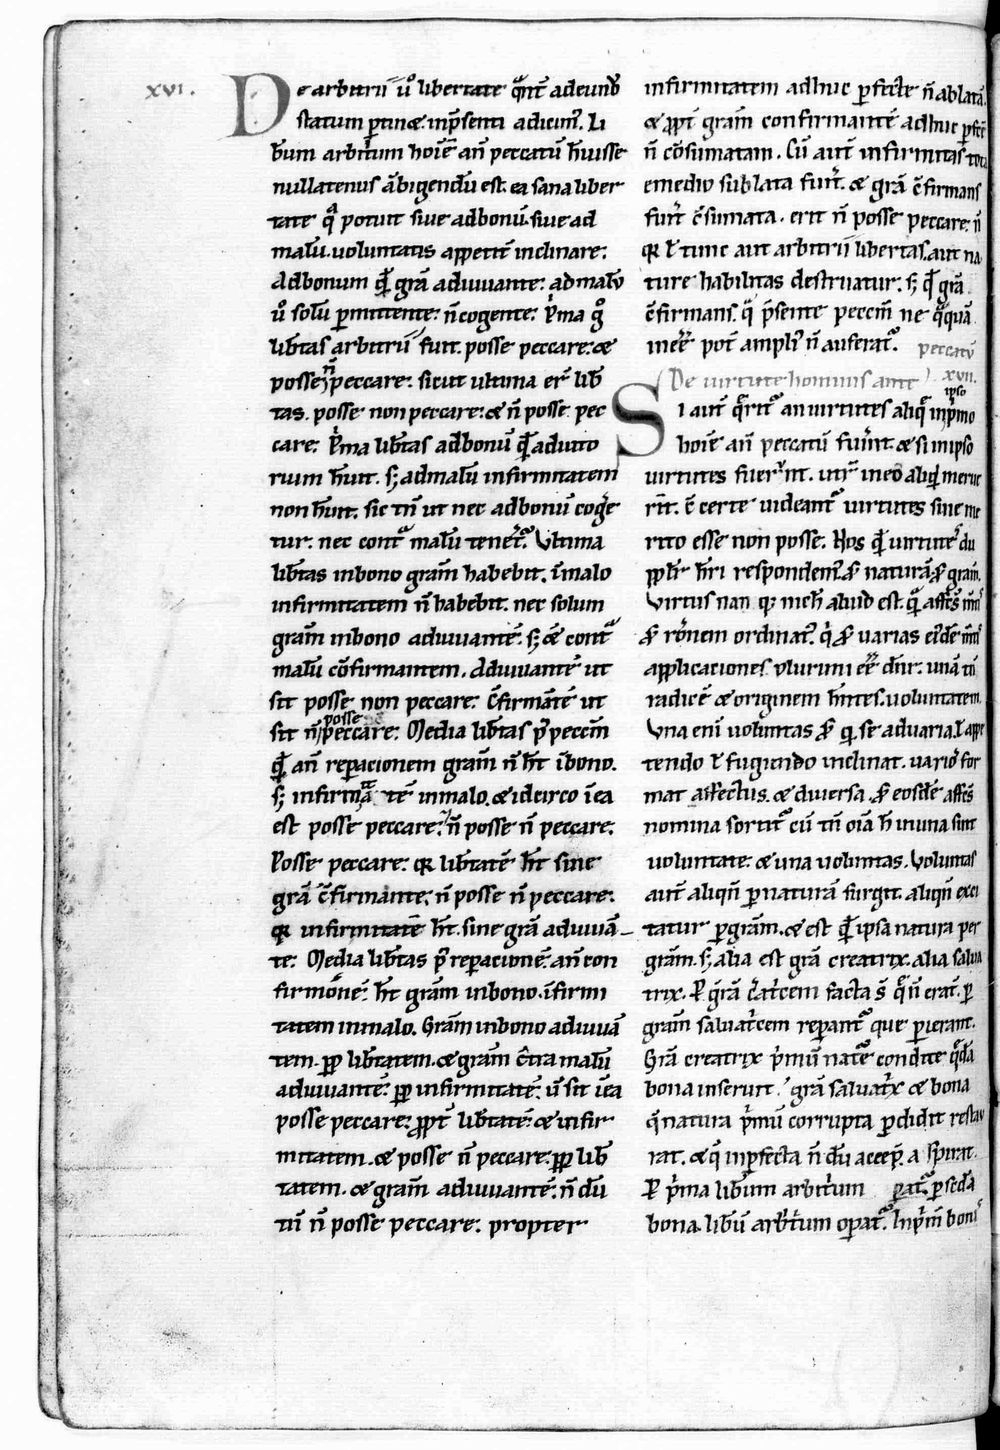 xvi.
De arbitrii ů libertate q̃ñt adeund̃
statum p̱tinẽ inp̃senti adicim᷒. Li
b̃um arbit̃um hoĩe añ peccatũ h̃uisse
nullatenus ãbigendũ est. ea sana liber
tate qͣ potuit siue adbonũ. siue ad
malũ. uoluntatis appetitũ inclinare:
Adbonum qͥdẽ gr̃a adiuuante: admalũ
ů solũ p̱mittente: ñ cogente: p̃ma gͦ
lib̃tas arbitrii fuit. posse peccare: &
posse ñ peccare: sicut ultima erit lib̃
tas. posse non peccare: & ñ posse pec
care: P̃ma lib̃tas adbonũ qͥdẽ adiuto
rium h̃uit. s; admalũ infirmitatem
non h̃uit. sic tñ ut nec adbonũ coger̃e
tur: nec contͣ malũ teneret᷒. Vltima
lib̃tas inbono gr̃am habebit. ĩmalo
infirmitatem ñ habebit. nec solum
gr̃am inbono adiuuantẽ. s; & contͣ
malũ cõfirmantem. Adiuuantẽ ut
sit posse non peccare: cõfirmãtẽ ut
sit ñ posse peccare: Media lib̃tas p᷒ pecc̃m
qͥdẽ añ reparacionem gr̃am ñ h̃t ĩbono.
s; infirmitatẽ inmalo. & idcirco ĩea
est posse peccare: & ñ posse ñ peccare:
Posse peccare: qr̃ lib̃tatẽ h̃t sine
gr̃a cõfirmante: ñ posse ñ peccare:
qr̃ infirmitatẽ h̃t. sine gr̃a adiuuã
te: Media lib̃tas p᷒ reparacionẽ: añ con
firmõnẽ: h̃t gr̃am inbono. ĩfirmi
tatem inmalo. Gr̃am inbono adiuuã
tem. pp̱ lib̃tatem. & gr̃am c̃tra malũ
adiuuantẽ: pp̱ infirmitatẽ: ut sit ĩea
posse peccare: pp̱t̃ lib̃tatẽ: & infir
mitatem. & posse ñ peccare: pp̱ lib̃
tatem. & gr̃am adiuuantẽ: ñ dũ
tñ ñ posse peccare: propter
infirmitatem adhuc p̱fecte ñ ablatã.
& pp̱t̃ gr̃am confirmantẽ adhuc p̱fecte
ñ cõsumatam. Cũ aut̃ infirmitas tota
emedio sublata fuit̃. & gr̃a c̃firmans
fuit̃ c̃sumata. erit ñ posse peccare: ñ
qr̃ ł tunc aut arbitrii libertas. aut na
ture habilitas destruatur. s; qd̃ gr̃a
c̃firmans. q̃ p̃sente pecc̃m ne qͣquã
inẽẽ pot̃ ampli᷒ ñ auferat᷒.
De uirtute hominis ante peccatũ xvii.
Si aut̃ q̃rit᷒ an uirtutes aliq̃ inp̃mo ipso
hoĩe añ peccatũ fuer̃int. & si in ipso
uirtutes fuer̃nt. utr̃ ineo aliqͥd merue
rĩt. c̃ certe uideant᷒ uirtutes sine me
rito esse non posse. Nos qͥdẽ uirtutẽ du
plicit̃ h̃ri respondem᷒. scd̃m naturã. scd̃m gr̃am.
Virtus nan q; nich̃ aliud est. q̃ aff̃s m̃tis
scd̃m rõnem ordinat᷒. qͥ scd̃m uarias ei᷒dẽ m̃tis
applicaciones plurimi ẽẽ dñr: unã tñ
radicẽ & originem h̃ntes. uoluntatem.
Vna eni᷒ uoluntas scd̃m qd̃ se aduaria. ł appe
tendo ł fugiendo inclinat. uarios for
mat affectus. & diuersa scd̃m eosdẽ aff̃s
nomina sortit᷒ cũ tñ oĩa h̃ inuna sint
uoluntate: & una uoluntas. Voluntas
aut̃ aliqñ p̱ naturã surgit. aliqñ exci
tatur p̱ gr̃am. & est qͥdẽ ipsa natura per
gr̃am. s; alia est gr̃a creatrix. alia salua
trix. P̱ gr̃am c̃at̃cem facta s̃ q̃ ñ erat̃. p̱
gr̃am saluat̃cem reparant᷒ que p̱ierant.
Gr̃a creatrix p̃mũ nat᷒e condite q̃dã
bona inseruit. gr̃a saluat̃x & bona
q̃ natura p̃mũ corrupta p̱didit restau
rat. & q̃ inp̱fecta ñ dũ accep̃. aspirat.
P̱ p̃ma lib̃um arbit̃um opatur. p̱ sc̃da
bona. lib̃ũ arb̃t̃um op̱at᷒. Inp̃mis boni᷒